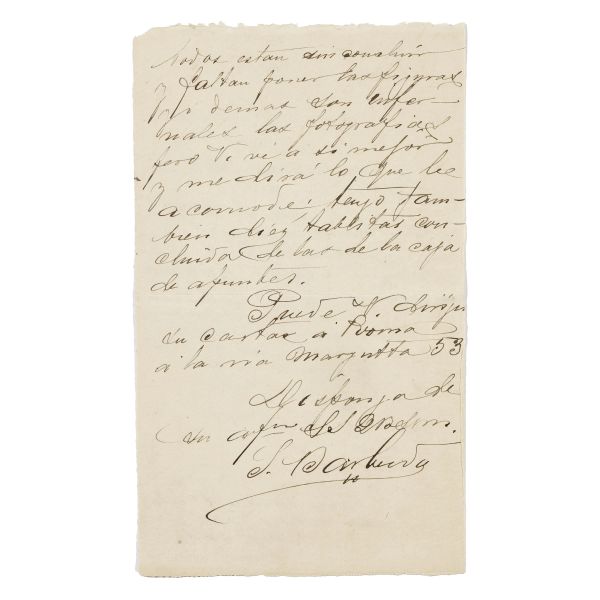 todos estan sin concluir
y faltan poner las figuras
y ademas son infer-
nales las fotografias
pero V. ve a si mejor
y me dirá lo que le
acomode; tengo tam-
bien diez tablitas con-
cluida de las de la caja
de apuntes.
Puede V. dirigir
su cartas á Roma
á la via Margutta 53
Disponga de
su afmo SS
S. Barbudo